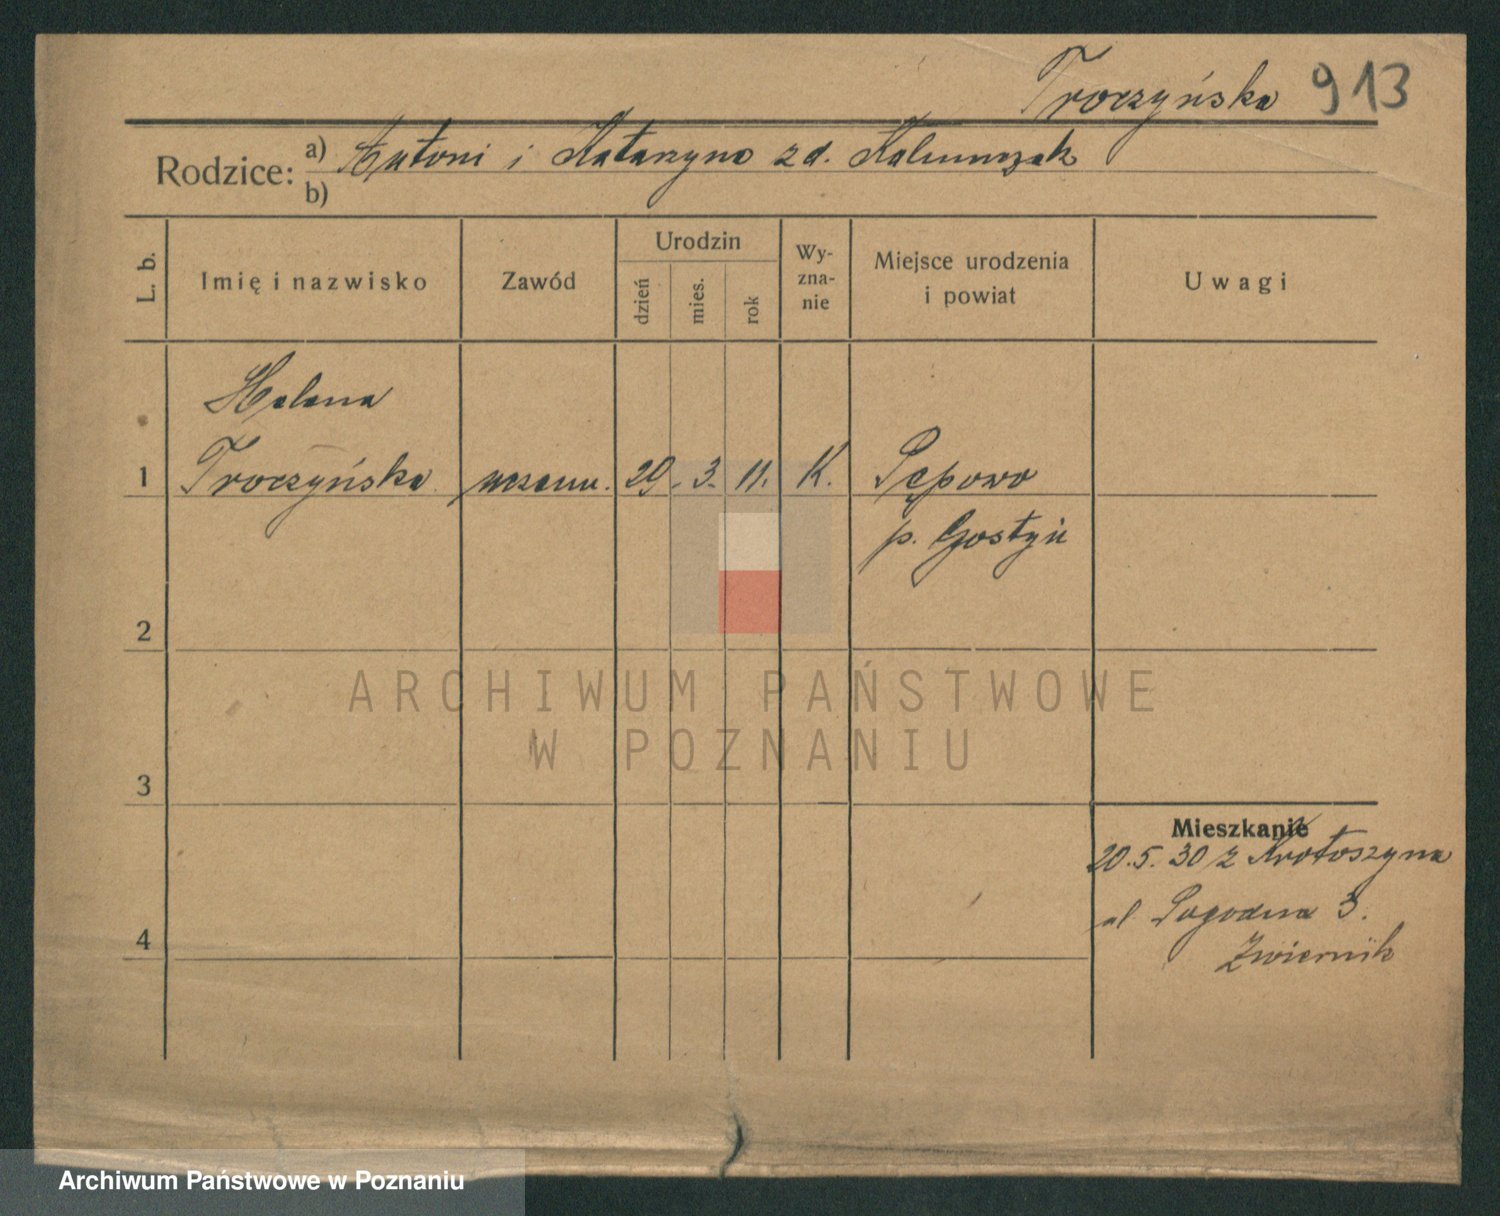 Troczyńska 913
Rodzice: a) Antoni i Katarzyna zd.
b)
L. b.
Imię i nazwisko
Zawód
Urodzin
dzień
mies.
rok
Wy-
zna-
nie
Miejsce urodzenia
i powiat
Uwagi
Helena
1 Troczyńska uczenn. 29. 3. 11. K. Pępowo
p. Gostyń
2
ARCHIWUM PAŃSTWOWE
W POZNANIU
3
Mieszkanie
20.5.30 z Krotoszyna
ul. Pogodna 3.
4
Zwiernik
Archiwum Państwowe w Poznaniu